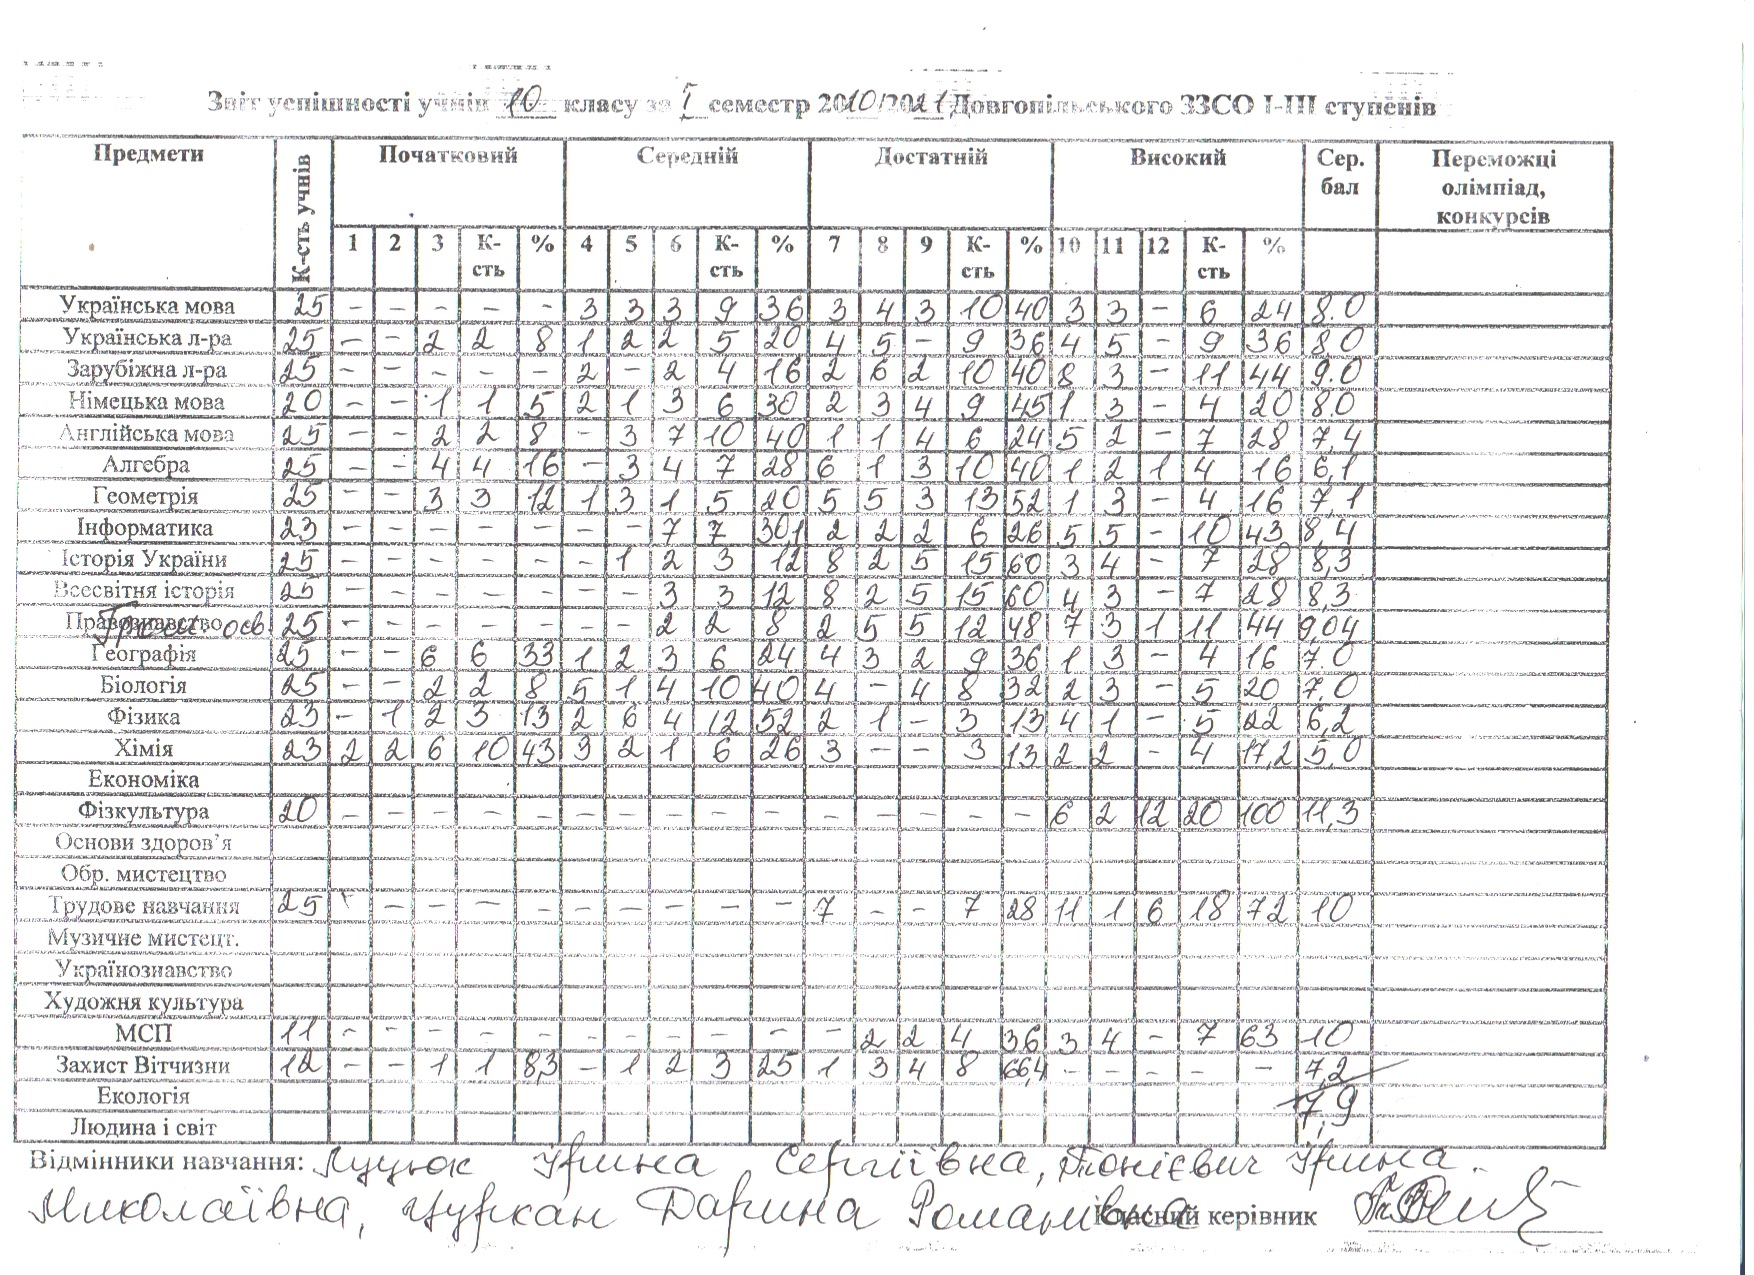 Звіт успішності учнів 10 класу за I семестр 2010/2021 Довгопільського ЗЗСО І-ІІІ ступенів
Предмети К-сть учнів Початковий Середній Достатній Високий Сер. бал Переможці олімпіад, конкурсів
1 2 3 К-сть % 4 5 6 К-сть % 7 8 9 К-сть % 10 11 12 К-сть %
Українська мова 25 – – – – – 3 3 3 9 36 3 4 3 10 40 3 3 – 6 24 8.0
Українська л-ра 25 – – 2 2 8 1 2 2 5 20 4 5 – 9 36 4 5 – 9 36 8.0
Зарубіжна л-ра 25 – – – – – 2 – 2 4 16 2 6 2 10 40 8 3 – 11 44 9.0
Німецька мова 20 – – 1 1 5 2 1 3 6 30 2 3 4 9 45 1 3 – 4 20 8.0
Англійська мова 25 – – 2 2 8 – 3 7 10 40 1 1 4 6 24 5 2 – 7 28 7,4
Алгебра 25 – – 4 4 16 – 3 4 7 28 6 1 3 10 40 1 2 1 4 16 6,1
Геометрія 25 – – 3 3 12 1 3 1 5 20 5 5 3 13 52 1 3 – 4 16 7.1
Інформатика 23 – – – – – – – 7 7 30,1 2 2 2 6 26 5 5 – 10 43 8,4
Історія України 25 – – – – – – 1 2 3 12 8 2 5 15 60 3 4 – 7 28 8,3
Всесвітня історія 25 – – – – – – – 3 3 12 8 2 5 15 60 4 3 – 7 28 8,3
Правознавство осв. 25 – – – – – – – 2 2 8 2 5 5 12 48 7 3 1 11 44 9,04
Географія 25 – – 6 6 33 1 2 3 6 24 4 3 2 9 36 1 3 – 4 16 7.0
Біологія 25 – – 2 2 8 5 1 4 10 40 4 – 4 8 32 2 3 – 5 20 7,0
Фізика 23 – 1 2 3 13 2 6 4 12 52 2 1 – 3 13 4 1 – 5 22 6,2
Хімія 23 2 2 6 10 43 3 2 1 6 26 3 – – 3 13 2 2 – 4 17,2 5,0
Економіка
Фізкультура 20 – – – – – – – – – – – – – – – 6 2 12 20 100 11,3
Основи здоров'я
Обр. мистецтво
Трудове навчання 25 – – – – – – – – – – 7 – – 7 28 11 1 6 18 72 10
Музичне мистецт.
Українознавство
Художня культура
МСП 11 – – – – – – – – – – – 2 2 4 36 3 4 – 7 63 10
Захист Вітчизни 12 – – 1 1 8,3 – 1 2 3 25 1 3 4 8 66,4 – – – – – 7,2
Екологія 7,9
Людина і світ
Відмінники навчання: Луцюк Ірина Сергіївна, Ірина
Миколаївна, Цуркан Дарина Романівна Класний керівник